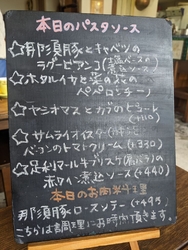 本日のパスタソース
☆那須豚とキャベツの
ラグービアンコ(塩ベースの煮込ソース)
☆ホタルイカと菜の花の
ペペロンチーノ
☆ヤシオマスとカブのトマトソース
(+110)
☆サムライオイスターと
ベーコンのトマトクリーム(+330)
☆足利マール牛ブリスケ
赤ワイン煮込ソース(+440)
本日のお肉料理
那須豚ロースソテー(+495)
こちらは調理にお時間頂きます。